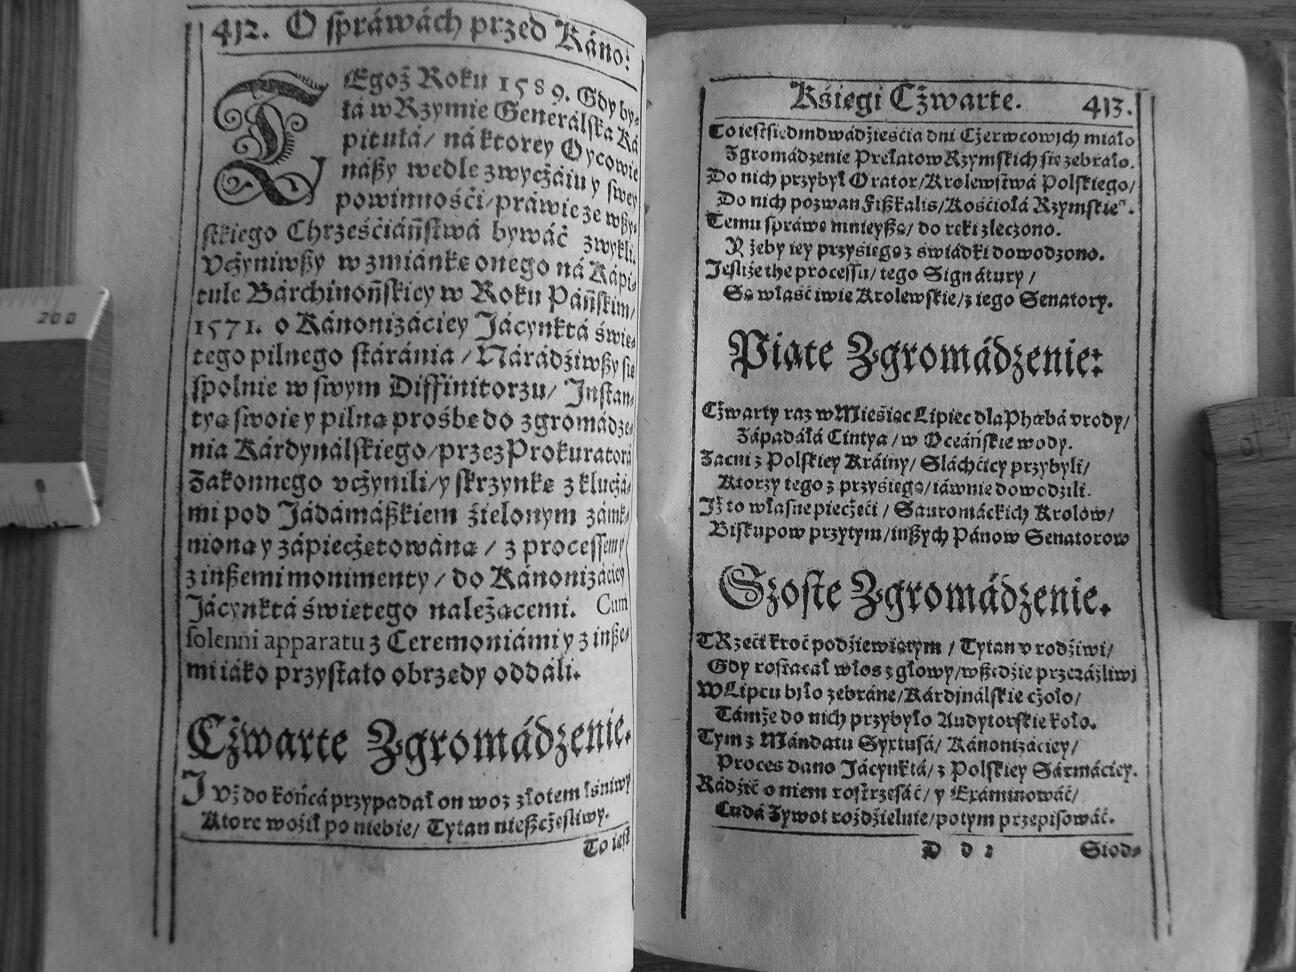 412. O spráwách przed Káno:
TEgoż Roku 1589. Gdy by-
ła w Rzymie Generálska Ká
pitułá / ná ktorey Oycowie
nászy wedle zwyczáiu y swey
powinnośći / práwie ze wszy-
stkiego Chrześćiáństwá bywáć zwykli.
Vczyniwszy wzmiánkę onego ná Kápi-
tule Bárchinońskiey w Roku Páńskim/
1571. o Kánonizáciey Jácynktá świę-
tego pilnego stáránia / Nárádźiwszy się
społnie w swym Diffinitorzu / Instan-
tyą swoię y pilną prośbę do zgromádze-
nia Kárdynalskiego / przez Prokuratorá
Zakonnego vczynili / y skrzynkę z kluczá-
mi pod Jádámászkiem źielonym zámk-
nioną y zápieczętowáną / z processem y
z inszemi monimenty / do Kánonizáciey
Jácynktá świętego należącemi. Cum
solenni apparatu z Ceremoniámi y z insze-
mi iáko przystało obrzędy oddáli.
Czwarte Zgromádzenie.
IVż do końcá przypadał on woz złotem lśniwy
Ktore woźił po niebie / Tytan nieszczęśliwy.
To iest
Kśięgi Czwarte. 413.
To iest siedmdwádźieśćia dni Czerwcowych miáło
Zgromádzenie Prełatow Rzymskich się zebráło.
Do nich przybył Orator / Krolewstwá Polskiego /
Do nich pozwan Fiszkalis / Kośćiołá Rzymskieº.
Temu spráwę mnieyszą / do ręki zleczono.
Y żeby iey przysięgą z świádki dowodzono.
Jesliże the processu / tego Signátury /
Są własćiwie Krolewskie / z iego Senatory.
Piąte Zgromádzenie:
Czwarty raz w Mieśiąc Lipiec dla Phœbá vrody /
Západáłá Cintya / w Oceáńskie wody.
Zacni z Polskiey Kráiny / Sláchćicy przybyli /
Ktorzy tego z przyśięgą / iáwnie dowodzili.
Iż to własne pieczęći / Sauromáckich Krolow /
Biskupow przytym / inszych Pánow Senatorow
Szoste Zgromádzenie.
TRzeći kroć podźiewiątym / Tytan vrodźiwi /
Gdy rostaczał włos z głowy / wszędźie przeráźliwi
W Lipcu było zebráne / Kárdinálskie czoło /
Támże do nich przybyło Audytorskie koło.
Tym z Mándatu Syxtusá / Kánonizáciey /
Proces dano Jácynktá / z Polskiey Sármáciey.
Rádźić o niem rostrzęsáć / y Examinowáć /
Cudá Zywot rozdźielnie / potym przepisowáć.
D d 2 Siod-